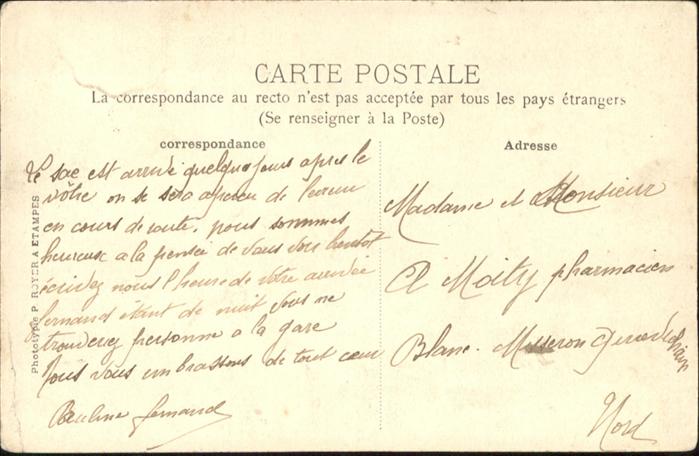 CARTE POSTALE
La correspondance au recto n'est pas acceptée par tous les pays étrangers
(Se renseigner à la Poste)
correspondance
Le sac est arrivé quelques jours apres le
vôtre on se sera aperçu de l'erreur
en cours de route, nous sommes
heureux a la pensée de vous voir bientot
écrivez nous l'heure de votre arrivée
fernand étant de nuit vous ne
trouverez personne a la gare
Nous vous embrassons de tout cœur
Pauline fernand
Adresse
Madame et Monsieur
A Moity pharmacien
Blanc-Misseron
Nord
Phototypie P. ROYER A ETAMPES